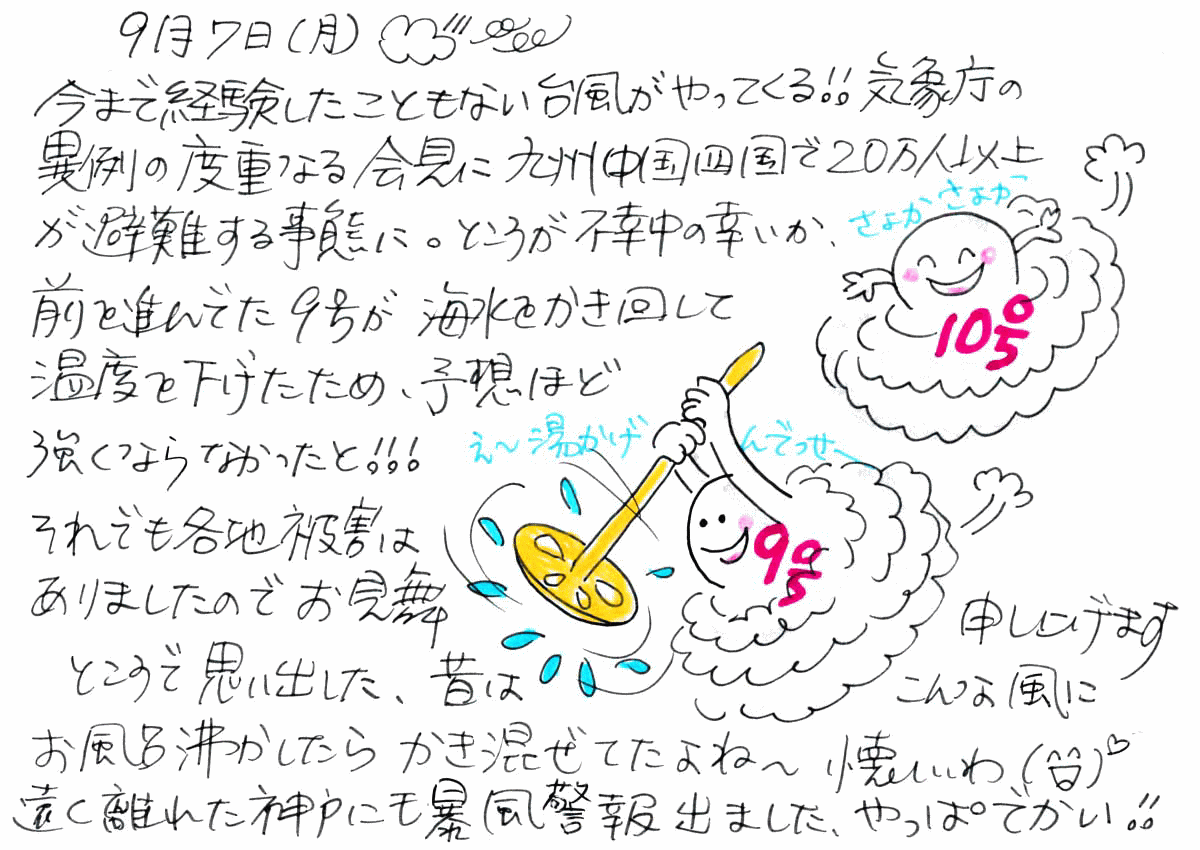 9月7日(月)
今まで経験したこともない台風がやってくる!!気象庁の
異例の度重なる会見に九州中国四国で20万人以上
が避難する事態に。ところが不幸中の幸いか、
さよか さよか
前を進んでた9号が海水をかき回して
10号
温度を下げたため、予想ほど
強くならなかったと!!!
え〜湯かげんでっせ〜
それでも各地被害は
9号
ありましたのでお見舞申し上げます
ところで思い出した、昔はこんな風に
お風呂沸かしたらかき混ぜてたよね〜懐しいわ
遠く離れた神戸にも暴風警報出ました、やっぱでかい!!